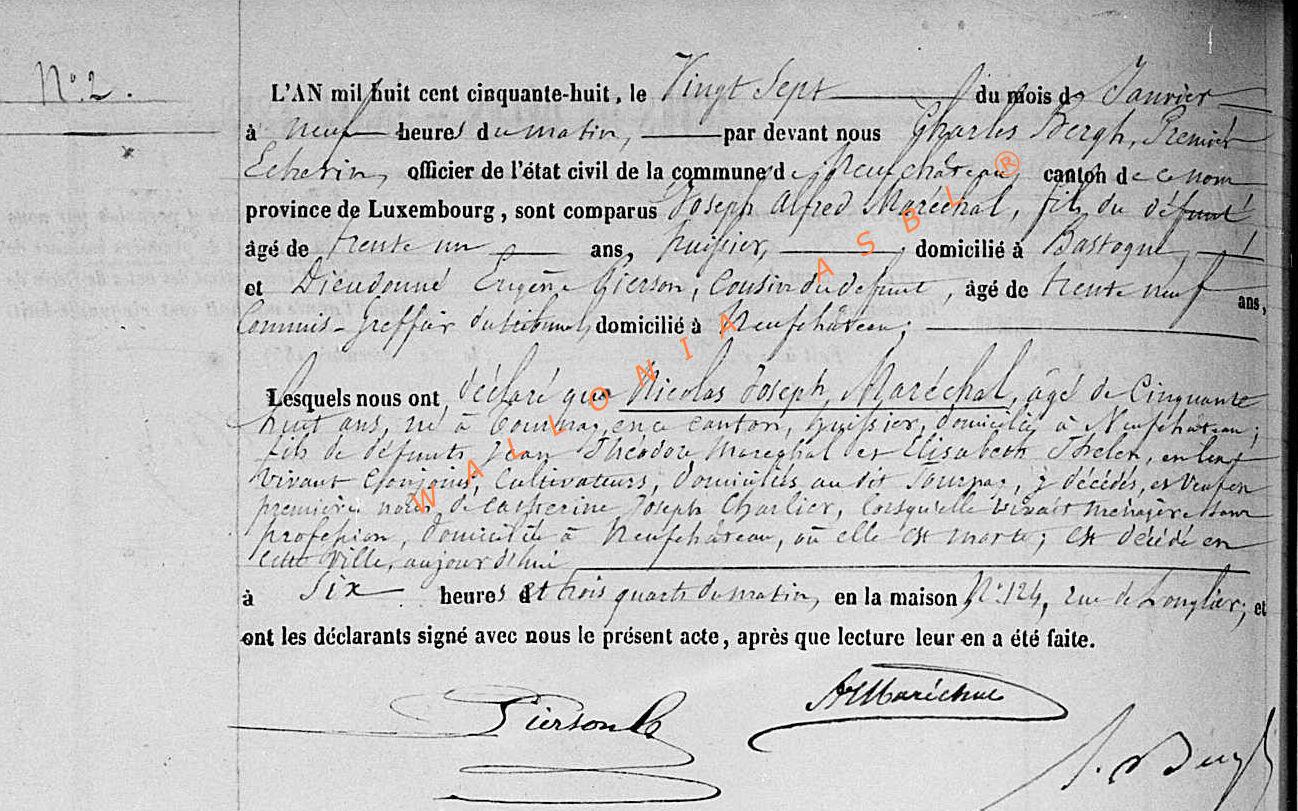 N° 2.
L'AN mil huit cent cinquante-huit, le Vingt Sept du mois de Janvier
à neuf heures du matin, par devant nous Charles Bergh, Premier
Echevin, officier de l'état civil de la commune de Neufchâteau canton de ce nom
province de Luxembourg, sont comparus Joseph Alfred Maréchal, fils du défunt
âgé de trente un ans, huissier, domicilié à Bastogne,
et Dieudonné Eugène Pierson, Cousin du défunt, âgé de trente neuf ans,
Commis-Greffier du tribunal, domicilié à Neufchâteau;
Lesquels nous ont déclaré que Nicolas Joseph Maréchal, âgé de Cinquante
huit ans, né à Tournay, en ce canton, huissier, domicilié à Neufchâteau;
fils de défunts Jean Théodore Maréchal et Elisabeth, en leur
vivant Conjoints, Cultivateurs, domiciliés au dit Tournay, y décédés, et Veuf en
premières noces de Catherine Joseph Charlier, lorsqu'elle vivait ménagère sans
profession, domiciliée à Neufchâteau, où elle est morte; est décédé en
cette Ville, aujourd'hui
à Six heures et trois quarts du matin, en la maison N° 124, rue de Longlier; et
ont les déclarants signé avec nous le présent acte, après que lecture leur en a été faite.
Pierson AMaréchal
WALLONIA ASBL ®